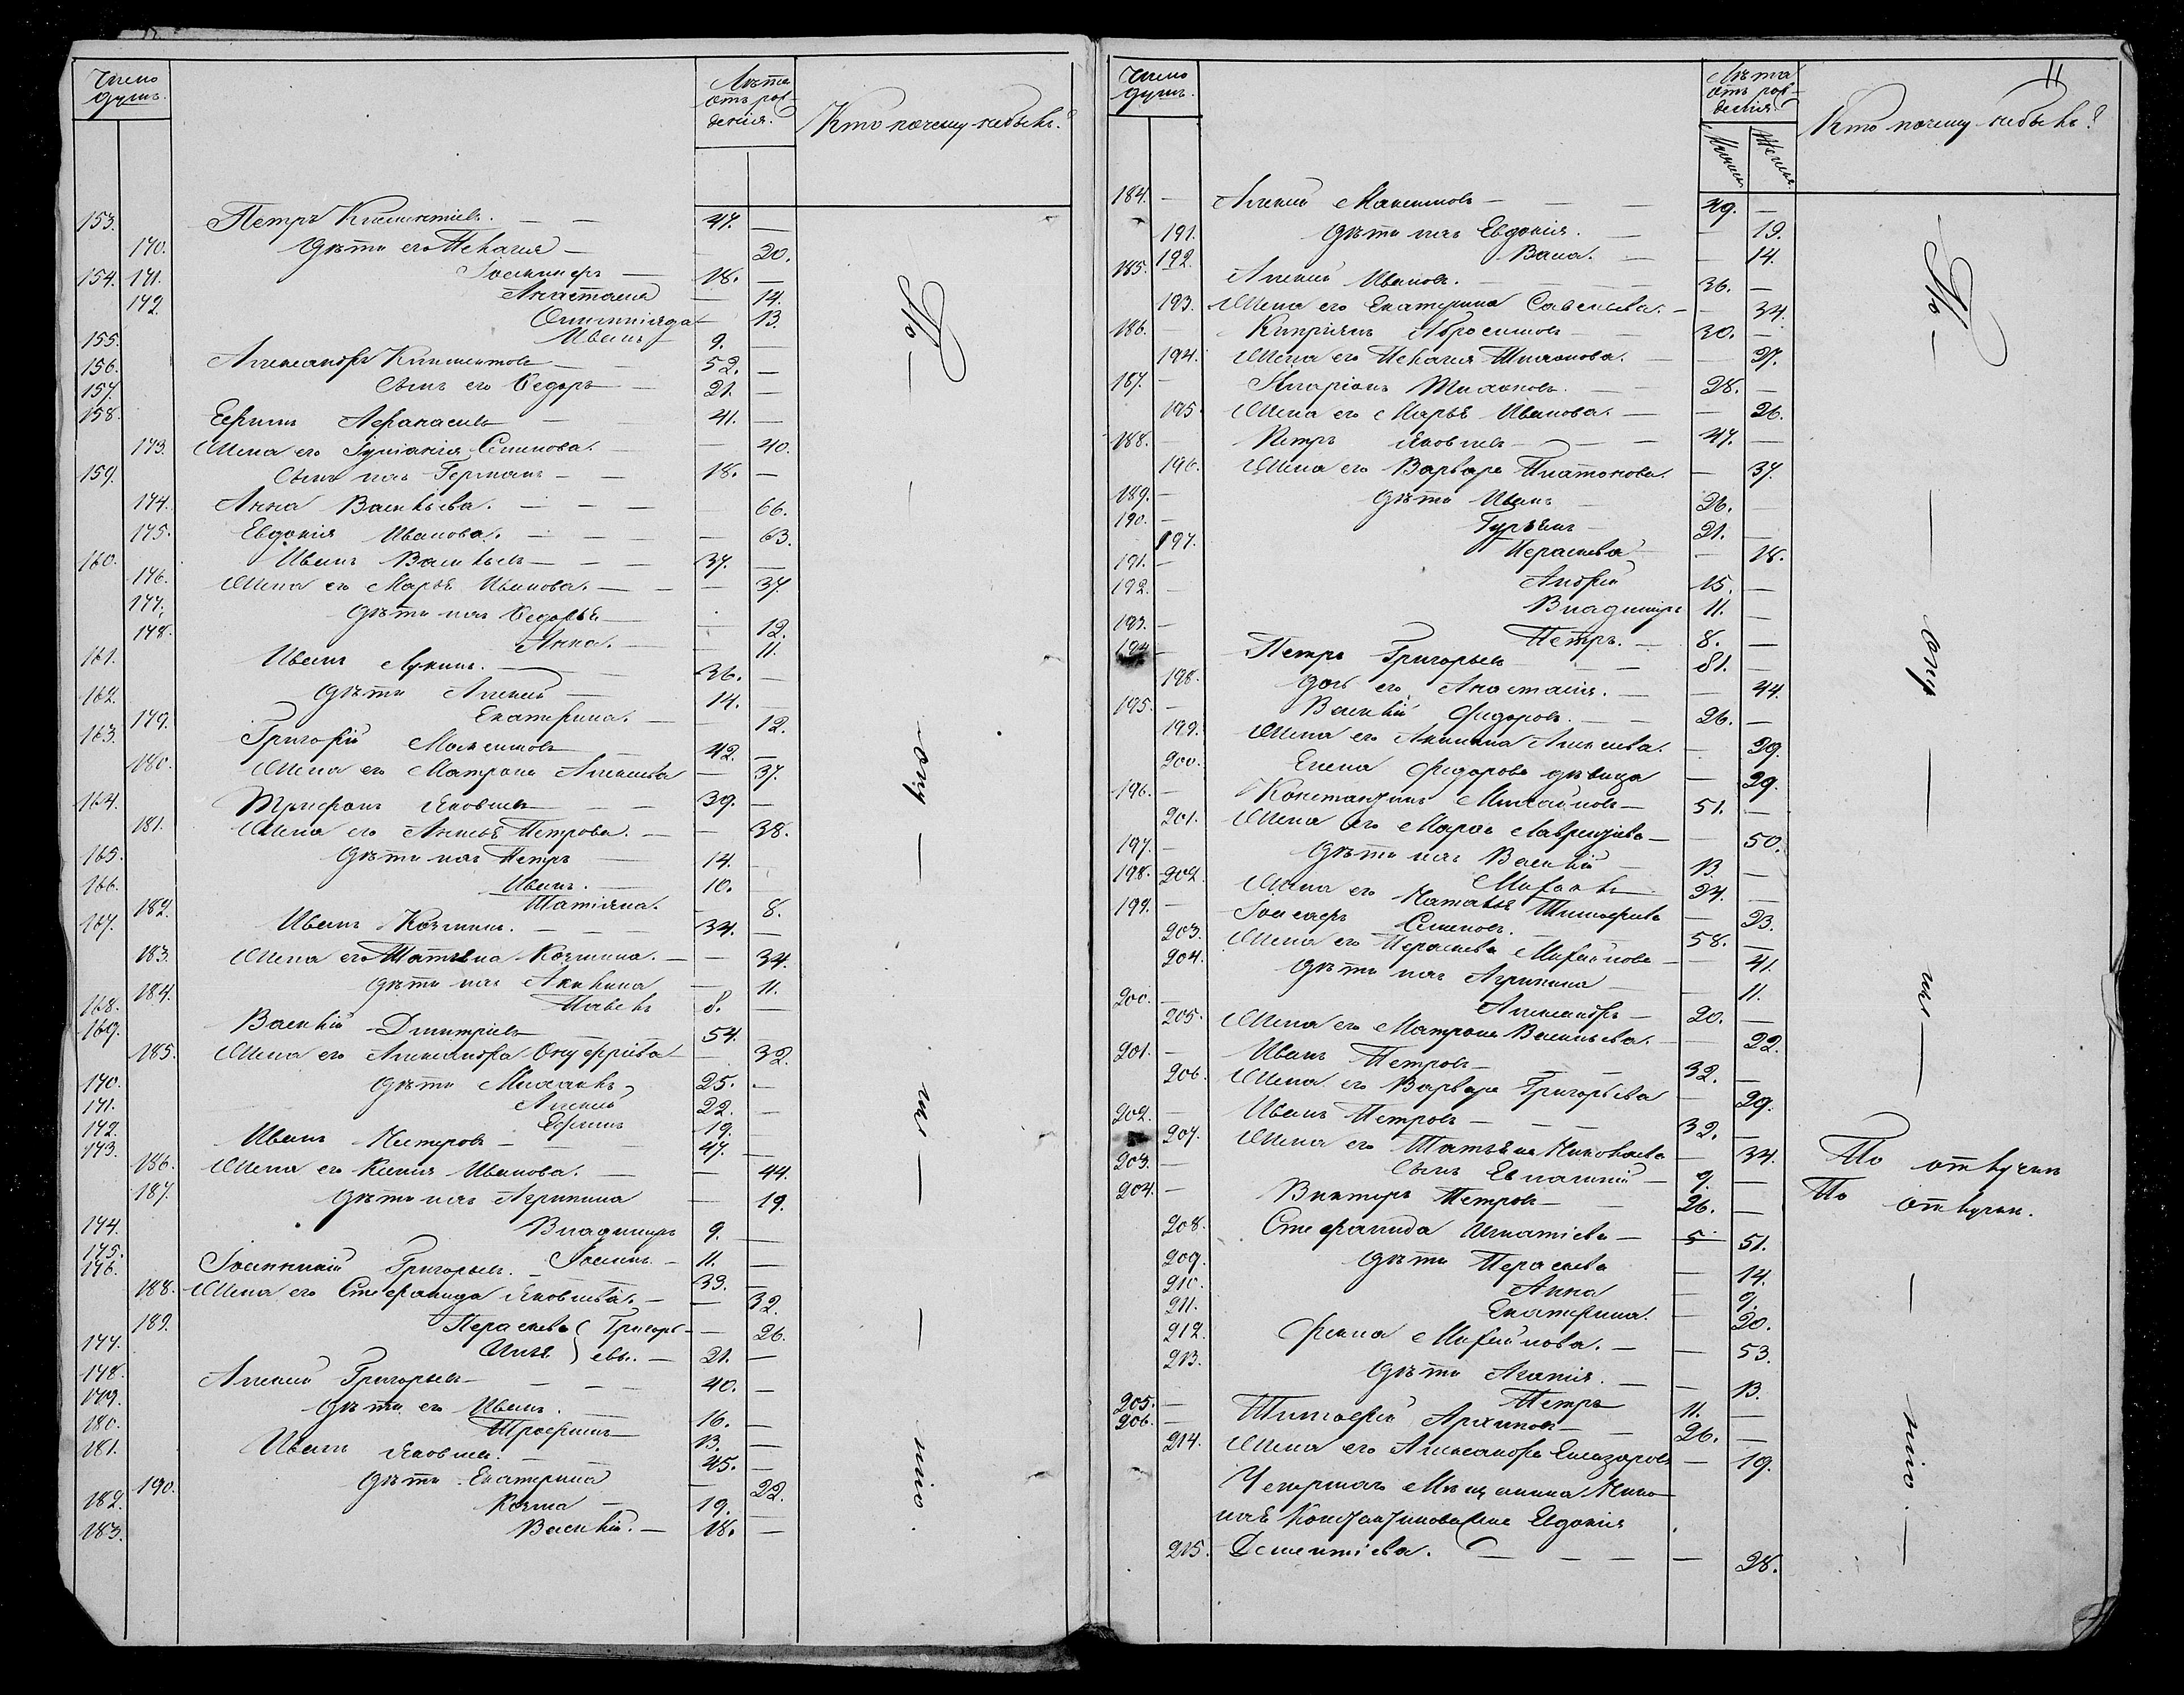 Число душъ.
Лѣта отъ рождения.
Кто почему небылъ?
153. Петръ Климентіевъ. — — 47. —
170. Дѣти его Пелагия — 20.
154. 171. Іоаникеръ — 18. —
172. Анастасия — 14.
Олимпіяда — 13.
155. Иванъ 9. —
156. Александръ Климентовъ — 52. —
157. Сынъ его Ѳедоръ — 21. —
158. Ефимъ Афанасьевъ — 41. —
173. Жена его Іуліанія Семенова. — 40.
159. Сынъ ихъ Германъ — 18. —
174. Анна Васильева. — — — 66.
175. Евдокія Иванова. — — — 63.
160. Иванъ Васильевъ — — — 37. —
176. Жена его Марья Иванова. — — 37.
177. Дѣти ихъ Ѳедосья — 12.
178. Анна. — 11.
161. Иванъ Лукинъ. — 36. —
162. Дѣти Алексѣй — 14. —
179. Екатерина. — 12.
163. Григорій Максимовъ — 42. —
180. Жена его Матрона Алексѣева — 37.
164. Трифонъ Яковлевъ — — 39. —
181. Жена его Анисья Петрова. — — 38.
165. Дѣти ихъ Петръ — 14. —
166. Иванъ. — 10. —
182. Татіяна. — 8.
167. Иванъ Козминъ. — — — 34. —
183. Жена его Татьяна Козмина. — — 34.
184. Дѣти ихъ Акилина — 11.
168. Павелъ 8. —
169. Василій Димитріевъ — 54. —
185. Жена его Александра Онуфріева — 32.
170. Дѣти Михаилъ 25. —
171. Алексѣй 22. —
172. Ефимъ 19. —
173. Иванъ Нестеровъ — 47. —
186. Жена его Ксенія Иванова. — — 44.
187. Дѣти ихъ Агрипина — 19.
174. Владимиръ 9. —
175. Іоанъ — 11. —
176. Іоанникій Григорьевъ. — 33. —
188. Жена его Стефанида Яковлева. — — 32.
189. Пераскева } Григорь- — 26.
177. Илья } евы. — 21. —
178. Алексѣй Григорьевъ — — — 40. —
179. Дѣти его Иванъ. — 16. —
180. Трофимъ — 13. —
181. Иванъ Яковлевъ. — — 45. —
190. Дѣти Екатерина — 22.
182. Козма — 19. —
183. Василій. — 18. —
По — — опу — ще — — нію.
11
Число душъ.
Лѣта отъ рождения.
Мужск. Женск.
Кто почему небылъ?
184. — Алексѣй Максимовъ — — — 49. —
191. Дѣти ихъ Евдокія. — — 19.
192. Васа. — — 14.
185. Алексѣй Ивановъ. — — — 36. —
193. Жена его Екатерина Савельева. — — 34.
186. — Кипріянъ Абросимовъ — 30. —
194. Жена его Пелагія Тихонова. — — 27.
187. — Иларіонъ Тихоновъ. — — 28. —
195. Жена его Марья Иванова. — — 26.
188. — Петръ Яковлевъ — — — 47. —
196. Жена его Варвара Платонова. — 37.
189. — Дѣти Иванъ — 26. —
190. — Гурьянъ — 21. —
197. Пераскева — — 18.
191. — Андрей 15. —
192. — Владимиръ 11. —
193. — Петръ. — 8. —
194 — Петръ Григорьевъ — — 81. —
198. Дочь его Анастасія. — — 44.
195. — Василій Фидоровъ. — — 26. —
199. Жена его Акилина Алексѣева. — 29.
200. Елена Фидорова дѣвица — 29.
196. — Константинъ Михайловъ — 51. —
201. Жена его Марья Лаврентіева — — 50.
197. — Дѣти ихъ Василій — 13. —
198. 202. Михаилъ — 24. —
Жена его Наталья Тимофѣева — 23.
199. — Іоасафъ Семеновъ. — 58. —
203. Жена его Пераскева Михайлова — — 41.
204. Дѣти ихъ Агрипина — — 11.
200. — Александръ — 20. —
205. Жена его Матрона Васильева. — 22.
201. — Иванъ Петровъ — — — 32. —
206. Жена его Варвара Григорьева — 29.
202. — Иванъ Петровъ — — — 32. —
207. Жена его Татьяна Николаева — 34.
203. — Сынъ Евлампій — 9. — По отлучкѣ
204. — Викторъ Петровъ — 26. — По отлучк.
208. Стефанида Игнатіева — 5 51.
209. Дѣти Пераскева — 14.
210. Анна — 9.
211. Екатерина. — 20.
212. Фекла Михайлова. — — 53.
213. Дѣти Агапія. — — 13.
205. — Петръ 11. —
206. — Тимофей Архиповъ — — 26. —
214. Жена его Александра Елизарова — 19.
Умершаго Мѣщанина Нико-
лая Константинова жена Евдокия
215. Дементіева. — — — — 28.
По — — опу — — ще — — нію. —